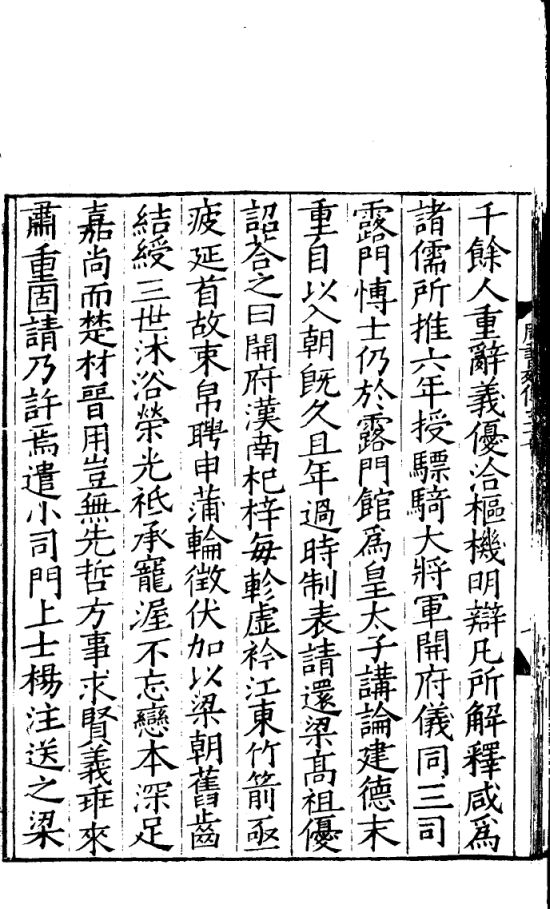 千餘人重辭義優洽樞機明辯凡所解釋咸爲
諸儒所推六年授驃騎大將軍開府儀同三司
露門博士仍於露門館爲皇太子講論建德末
重自以入朝旣久且年過時制表請還梁髙祖優
詔荅之曰開府漢南杞梓每軫虛衿江東竹箭亟
疲延首故束帛聘申蒲輪徵伏加以梁朝舊齒
結綬三世沐浴榮光祇承寵渥不忘戀本深足
嘉尚而楚材晉用豈無先哲方事求賢義乖來
肅重固請乃許焉遣小司門上士楊汪送之梁